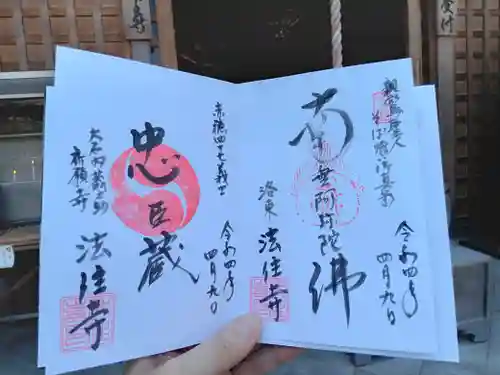 親鸞聖人
そば喰い御木像
南無阿弥陀佛
令和四年
四月九日
洛東
法住寺
赤穂四十七義士
忠臣蔵
令和四年
四月九日
大石内蔵之助
祈願寺
法住寺